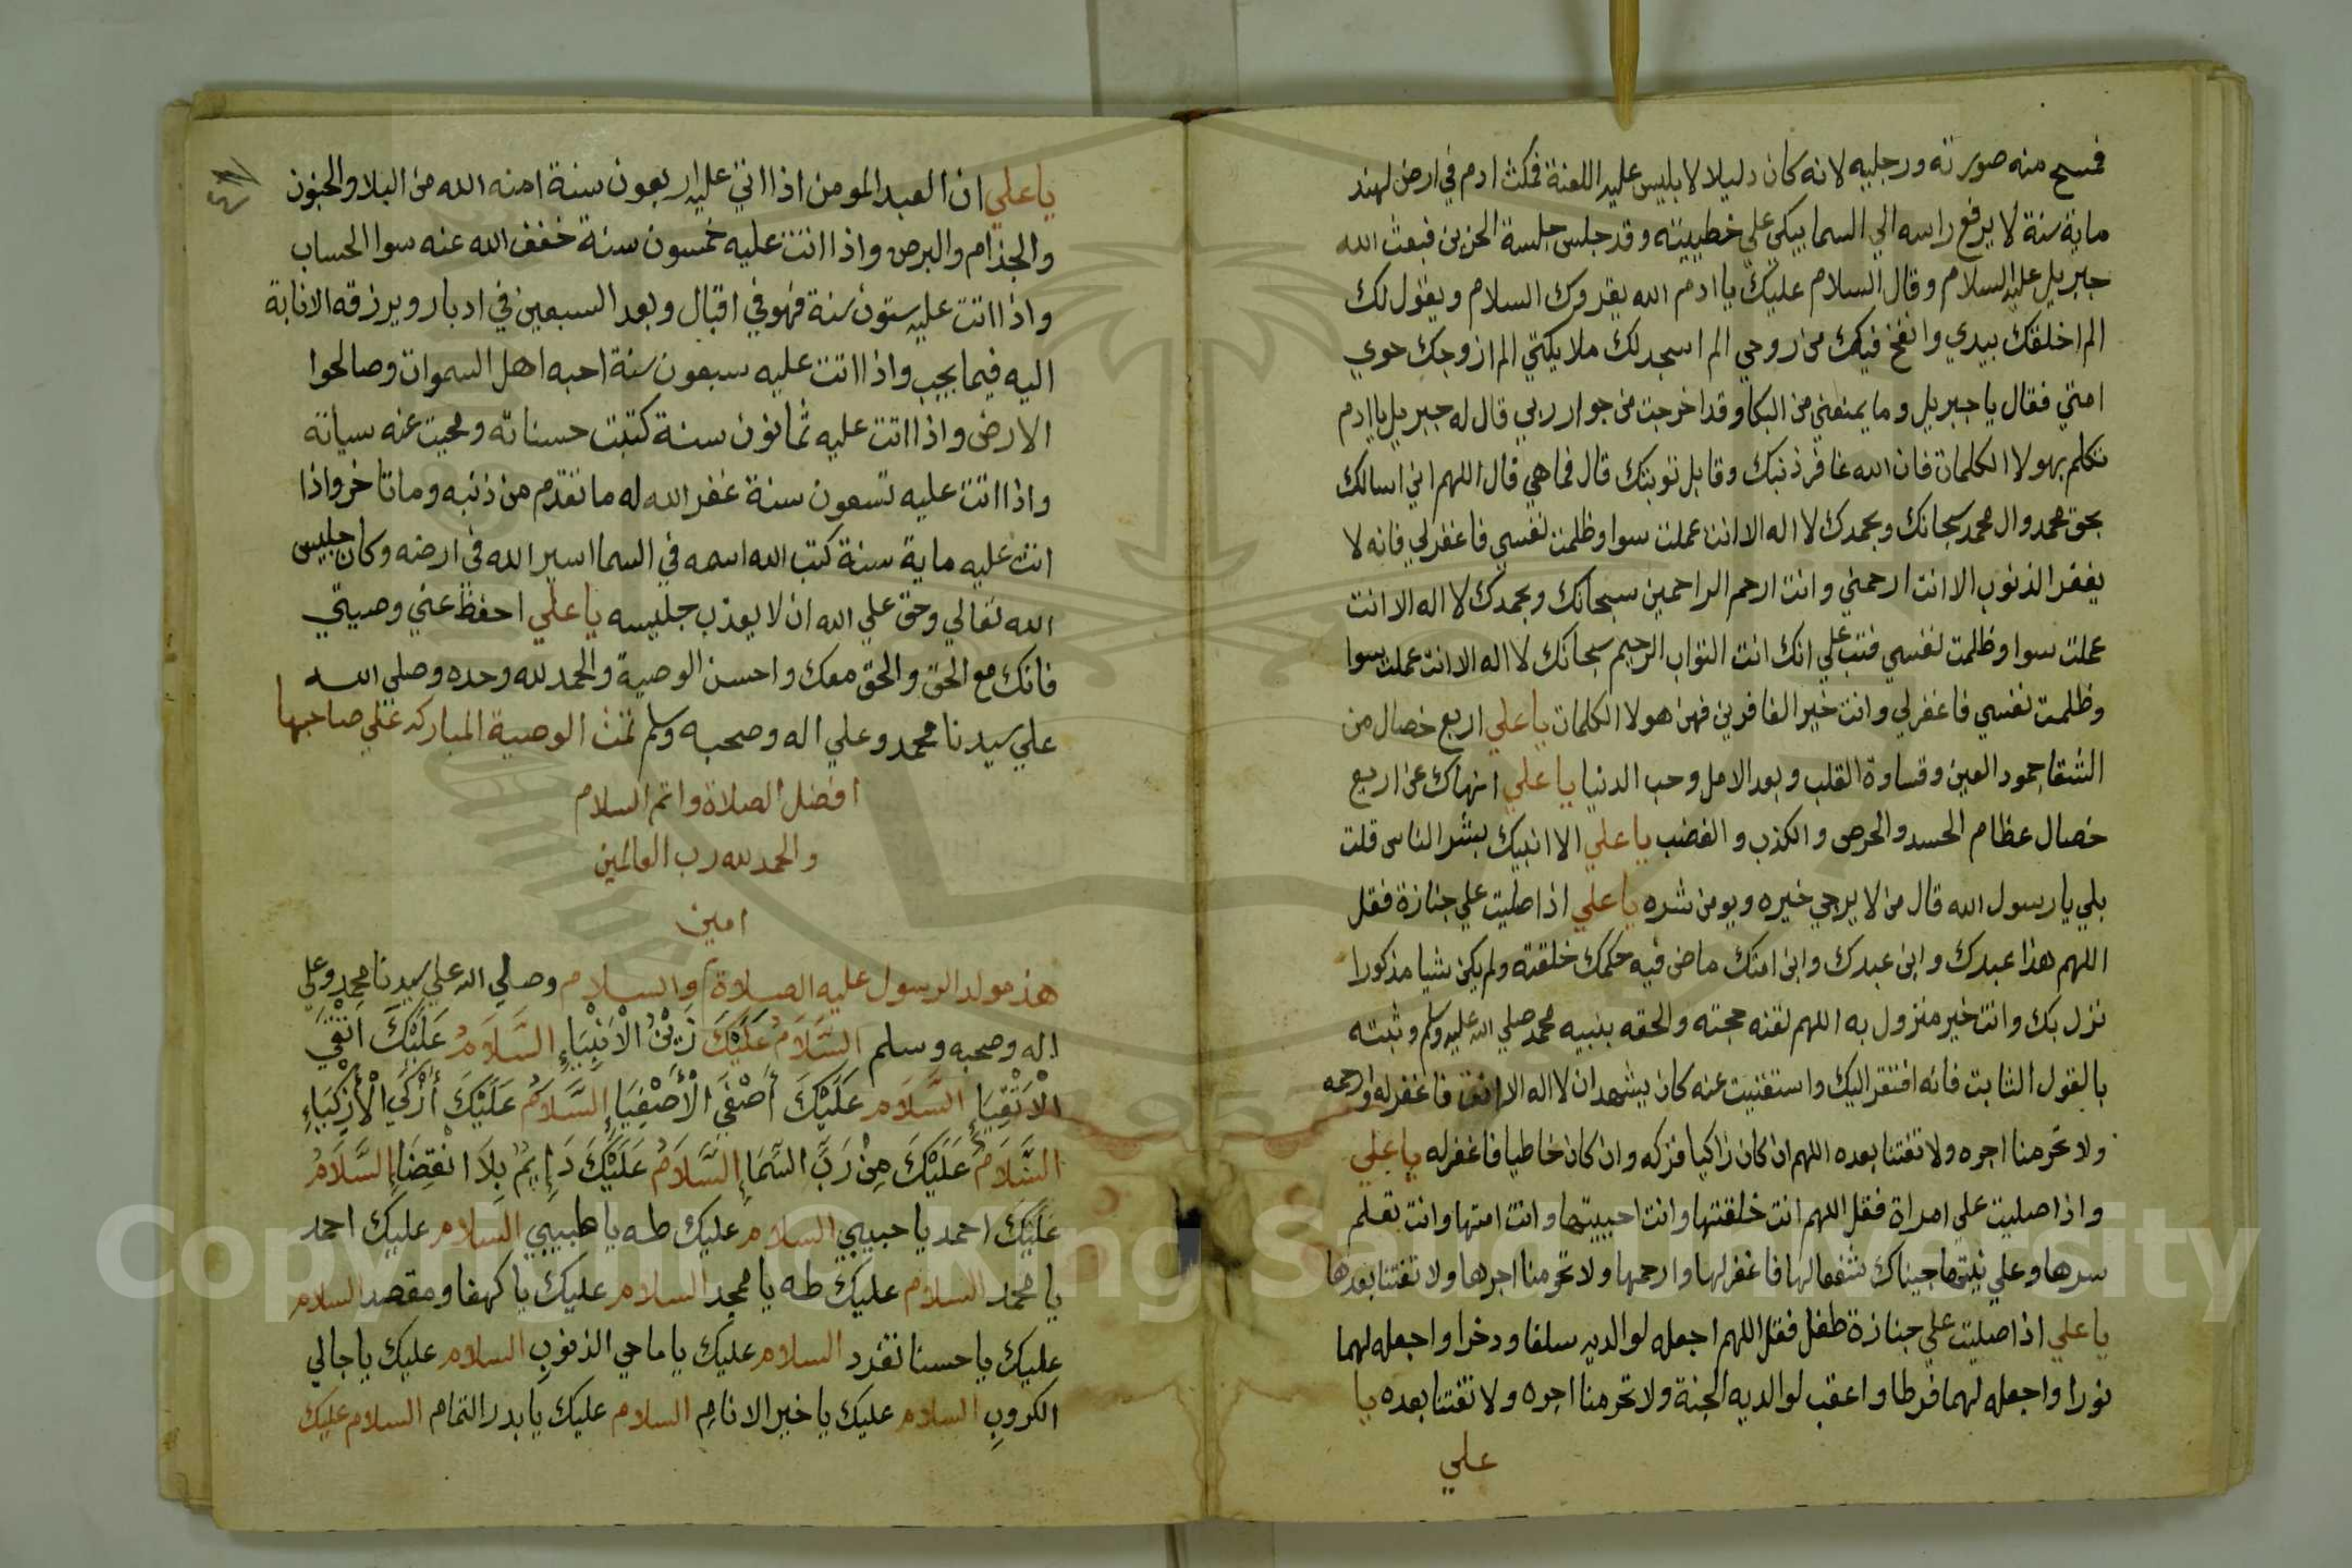 فمسح منه صورته ورجليه لانه كان دليلا لابليس عليه اللعنة فمكث ادم في ارض لهند
ماية سنة لا يرفع راسه الي السما يبكي علي خطيبته وقد جلس جلسة الحزين فبعث الله
جبريل عليه السلام وقال السلام عليك يا ادم الله يقروك السلام ويقول لك
الم اخلقك بيدي وانفخ فيك من روحي الم اسجد لك ملايكتي الم ازوجك حوي
امتي فقال يا جبريل وما يمنعني من البكا وقد اخرجت من جوار ربي قال له جبريل يا ادم
تكلم بهولا الكلمات فان الله غافر ذنبك وقابل توبتك قال فما هي قال اللهم اني اسالك
بحق محمد وال محمد سبحانك وبحمدك لا اله الا انت عملت سوا وظلمت نفسي فاغفر لي فانه لا
يغفر الذنوب الا انت ارحمني وانت ارحم الراحمين سبحانك وبحمدك لا اله الا انت
عملت سوا وظلمت نفسي فتب علي انك انت التواب الرحيم سبحانك لا اله الا انت عملت سوا
وظلمت نفسي فاغفر لي وانت خير الغافرين فهن هولا الكلمات يا علي اربع خصال من
الشقا جمود العين وقساوة القلب وبعد الامل وحب الدنيا يا علي انهاك عن اربع
خصال عظام الحسد والحرص والكذب والغضب يا علي الا انبيك بشر الناس قلت
بلي يا رسول الله قال من لا يرجي خيره ويومن شره يا علي اذا صليت علي جنازة فقل
اللهم هذا عبدك وابن عبدك وابن امتك ماض فيه حكمك خلقته ولم يكن شيا مذكورا
نزل بك وانت خير منزول به اللهم لقنه حجته والحقه بنبيه محمد صلي الله عليه وسلم وثبته
بالقول الثابت فانه افتقر اليك واستغنيت عنه كان يشهد ان لا اله الا انت فاغفر له وارحمه
ولا تحرمنا اجره ولا تفتنا بعده اللهم ان كان زاكيا فزكه وان كان خاطيا فاغفر له يا علي
واذا صليت علي امراة فقل اللهم انت خلقتها وانت احييتها وانت امتها وانت تعلم
سرها وعلي نيتها جيناك شفعا لها فاغفر لها وارحمها ولا تحرمنا اجرها ولا تفتنا بعدها
يا علي اذا صليت علي جنازة طفل فقل اللهم اجعله لوالديه سلفا ودخرا واجعله لهما
نورا واجعله لهما فرطا واعقب لوالديه الجنة ولا تحرمنا اجره ولا تفتنا بعده يا
علي
يا علي ان العبد المومن اذا اتي عليه اربعون سنة امنه الله من البلا والجنون
والجذام والبرص واذا اتت عليه خمسون سنة خفف الله عنه سوا الحساب
واذا اتت عليه ستون سنة فهو في اقبال وبعد السبعين في ادبار ويرزقه الانابة
اليه فيما يحب واذا اتت عليه سبعون سنة احبه اهل السموات وصالحوا
الارض واذا اتت عليه ثمانون سنة كتبت حسناته ومحيت عنه سياته
واذا اتت عليه تسعون سنة غفر الله له ما تقدم من ذنبه وما تاخر واذا
اتت عليه ماية سنة كتب الله اسمه في السما اسير الله في ارضه وكان جليس
الله تعالي وحق علي الله ان لا يعذب جليسه يا علي احفظ عني وصيتي
فانك مع الحق والحق معك واحسن الوصية والحمد لله وحده وصلي الله
علي سيدنا محمد وعلي اله وصحبه وسلم تمت الوصية المباركه علي صاحبها
افضل الصلاة واتم السلام
والحمد لله رب العالمين
امين
هذ مولد الرسول عليه الصلاة والسلام وصلي الله علي سيدنا محمد وعلي
اله وصحبه وسلم السَّلَامُ عَلَيْكَ زَيْنُ الْاَنْبِيَاءِ السَّلَامُ عَلَيْكَ اَتْقَي
الْاَتْقِيَاءِ السَّلَام عَلَيْكَ أَصْفَي الْأَصْفِيَاءِ السَّلَامُ عَلَيْكَ أَزْكَي الْأَزْكِيَاءِ
السَّلَامُ عَلَيْكَ مِنْ رَبِّ السَّمَاءِ السَّلَامُ عَلَيْكَ دَايِمٌ بِلَا انْقِضَاءِ السَّلَامُ
عَلَيْكَ احمد يا حبيبي السلام عليك طه يا طبيبي السلام عليك احمد
يا محمد السلام عليك طه يا ممجد السلام عليك يا كهفا ومقصد السلام
عليك يا حسنا تفرد السلام عليك يا ماحي الذنوب السلام عليك يا جالي
الكروب السلام عليك يا خير الانام السلام عليك يا بدر التمام السلام عليك
Copyright © King Saud University